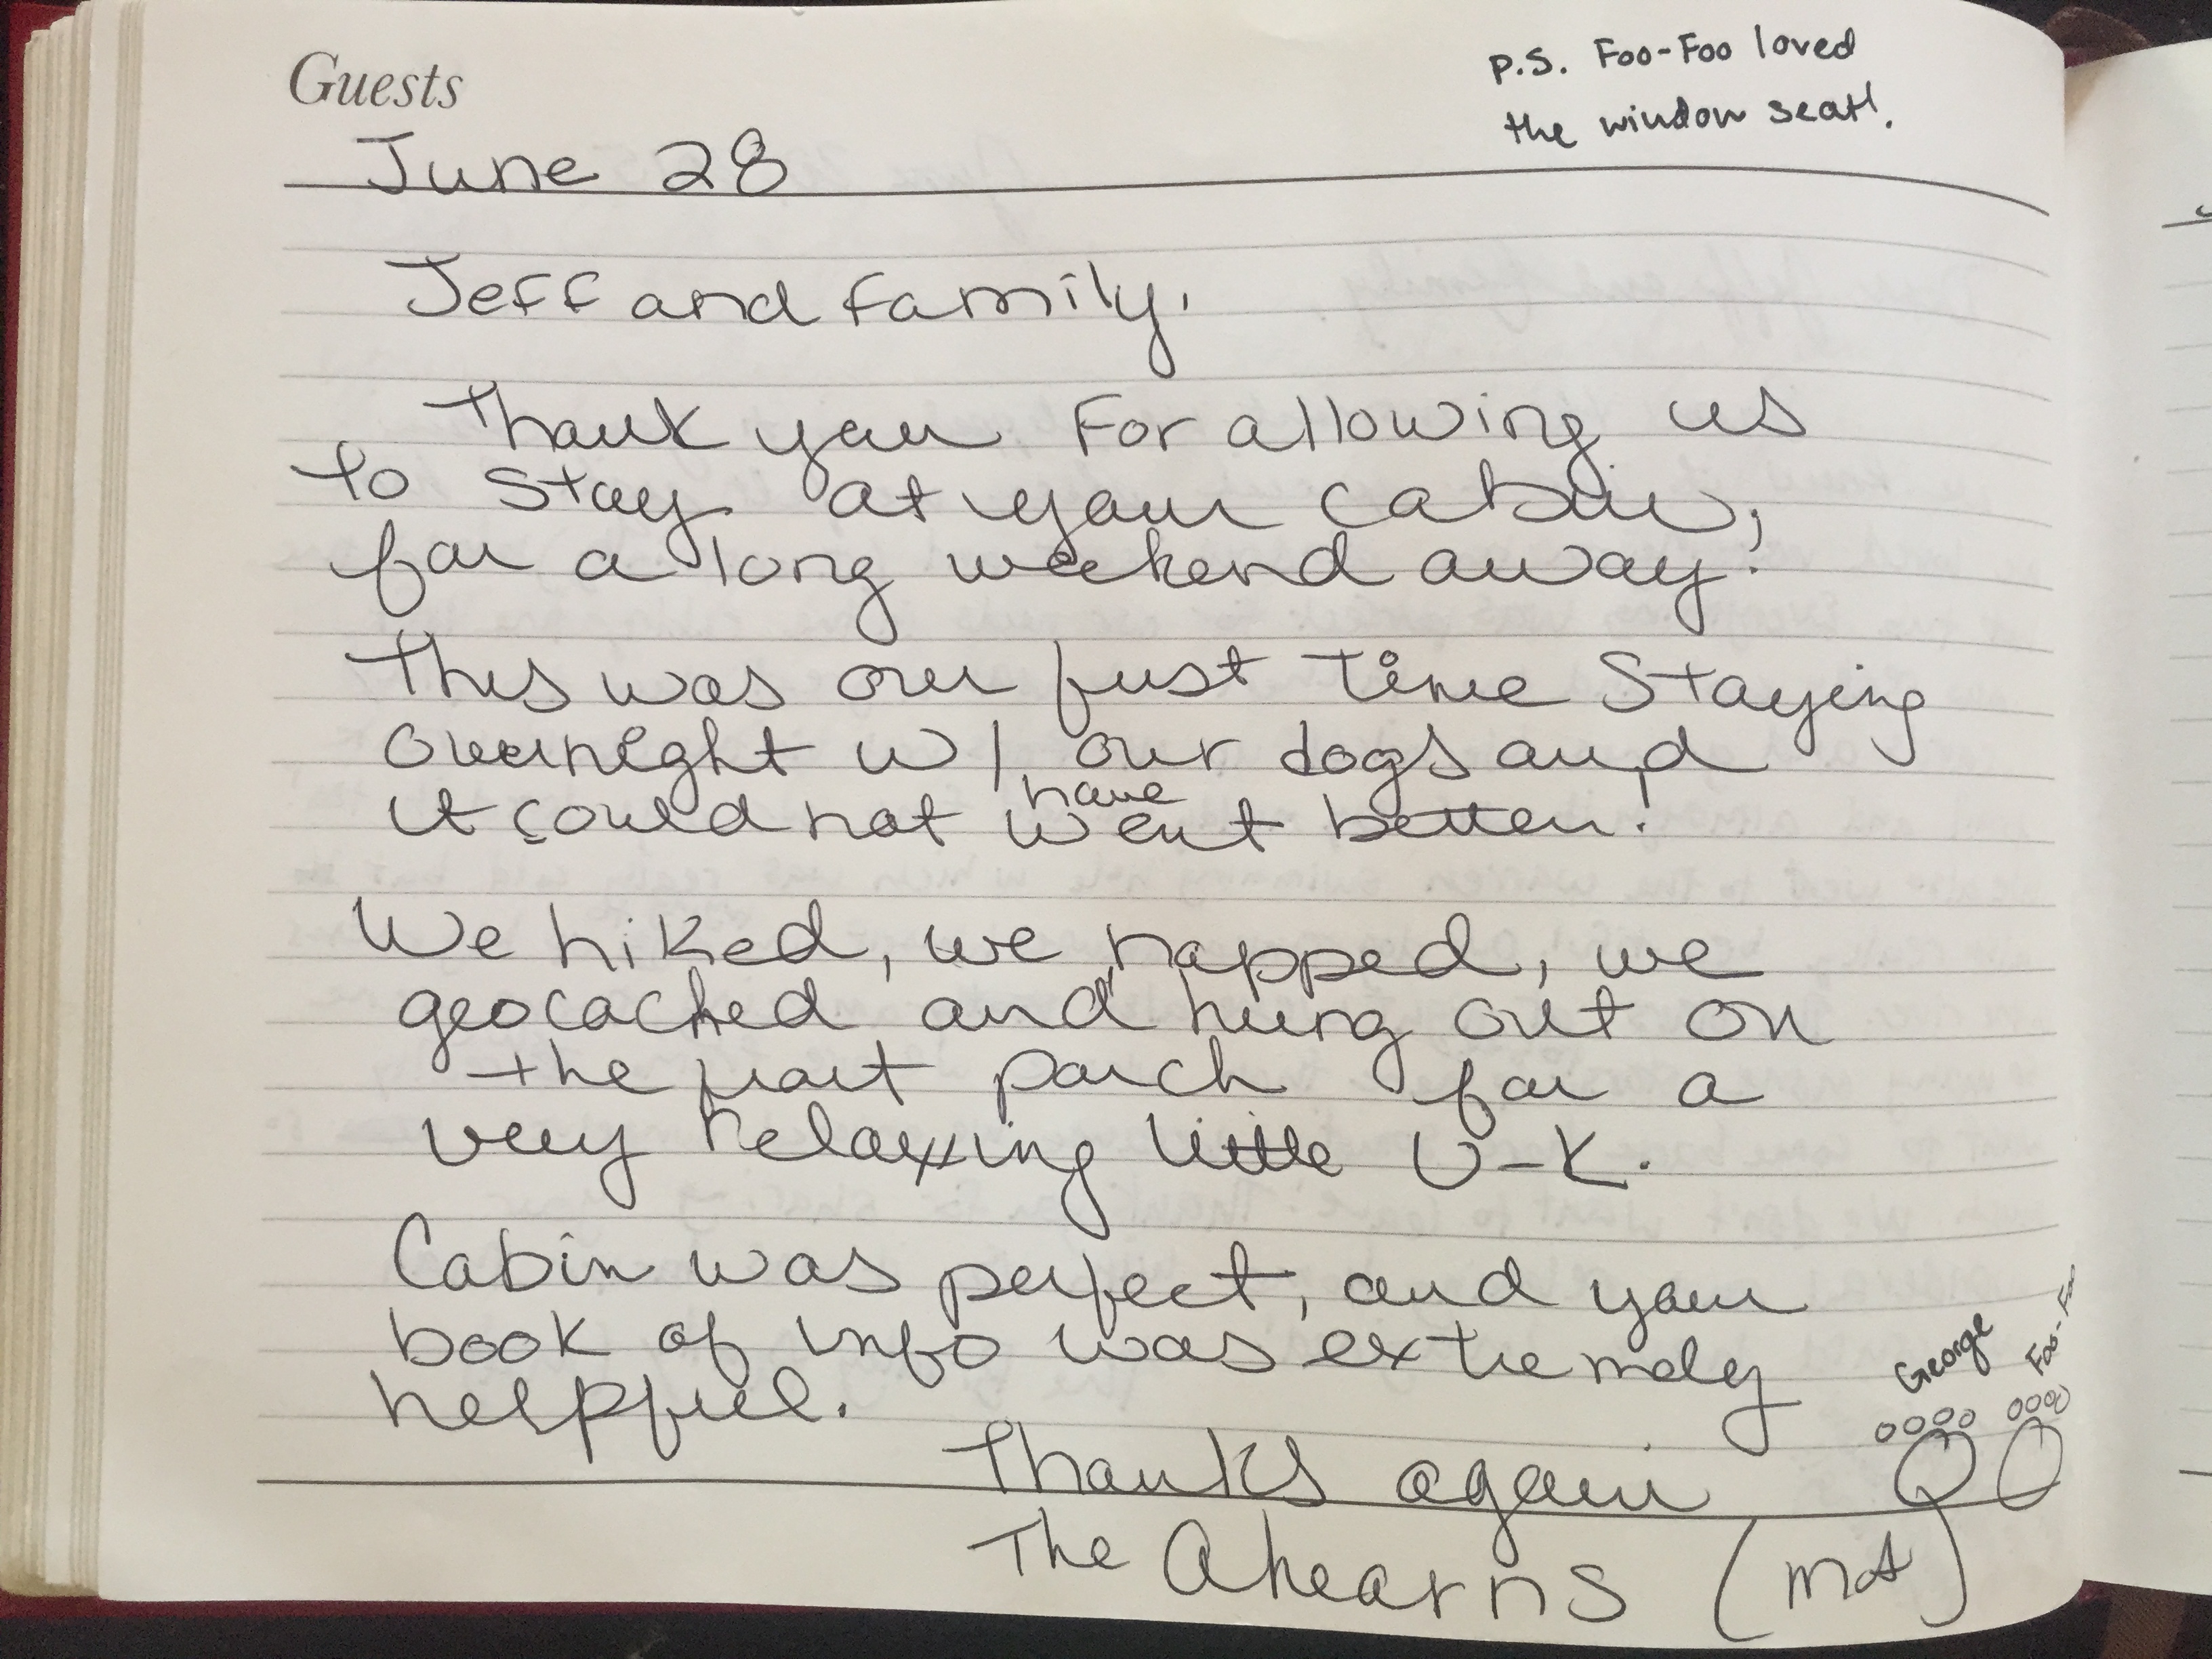 Guests
P.S. Foo-Foo loved
the window seat!
June 28
Jeff and family,
Thank you for allowing us
to stay at your cabin,
for a long weekend away!
This was our first time staying
overnight w/ our dogs and
it could not have went better!
We hiked, we napped, we
geocached and hung out on
the front porch for a
very relaxing little V-K.
Cabin was perfect, and your
book of info was extremely
helpful.
George Foo-Foo
Thanks again
The Ahearns (MA)